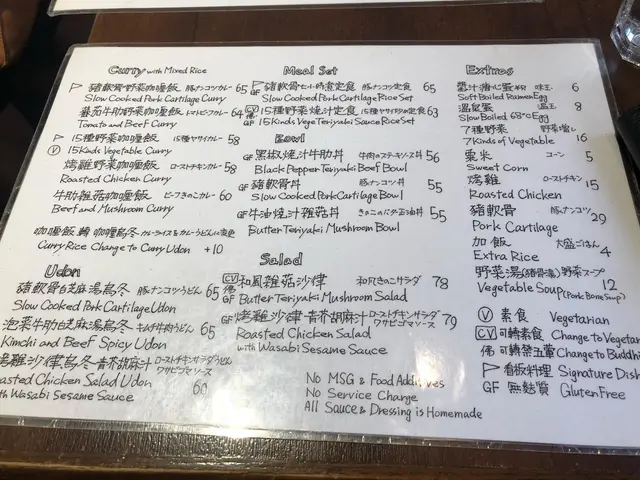 Curry with Mixed Rice
豬軟骨野菜咖喱飯 豚ナンコツカレー 65
Slow Cooked Pork Cartilage Curry
蕃茄牛肋野菜咖喱飯 トマトビーフカレー 64
Tomato and Beef Curry
15種野菜咖喱飯 15種ヤサイカレー 58
Ⓥ 15 Kinds Vegetable Curry
烤雞野菜咖喱飯 ローストチキンカレー 58
Roasted Chicken Curry
牛肋雜菇咖喱飯 ビーフきのこカレー 60
Beef and Mushroom Curry
咖喱飯轉咖喱烏冬 カレーライスをカレーうどんに変更
Curry Rice Change to Curry Udon +10
Udon
豬軟骨白芝麻湯烏冬 豚ナンコツうどん 65
Slow Cooked Pork Cartilage Udon
泡菜牛肋白芝麻湯烏冬 キムチ牛肉うどん 65
Kimchi and Beef Spicy Udon
烤雞沙律烏冬-青芥胡麻汁 ローストチキンサラダうどん
ワサビゴマソース
asted Chicken Salad Udon
th Wasabi Sesame Sauce 60
Meal Set
豬軟骨セット時煮定食 豚ナンコツ定食 65
GF Slow Cooked Pork Cartilage Rice Set
CV 佛 15種野菜燒汁定食 15種ヤサイテリヤキ定食 63
GF 15 Kinds Vege Teriyaki Sauce Rice Set
Bowl
GF 黑椒燒汁牛肋丼 牛肉のステキソース丼 56
Black Pepper Teriyaki Beef Bowl
GF 豬軟骨丼 豚ナンコツ丼 55
Slow Cooked Pork Cartilage Bowl
GF 牛油燒汁雜菇丼 きのこのバター正油丼 55
Butter Teriyaki Mushroom Bowl
Salad
CV 佛 和風雜菇沙律 和風きのこサラダ 78
GF Butter Teriyaki Mushroom Salad
GF 烤雞沙律-青芥胡麻汁 ローストチキンサラダ 79
ワサビゴマソース
Roasted Chicken Salad
with Wasabi Sesame Sauce
No MSG & Food Additives
No Service Change
All Sauce & Dressing is Homemade
Extras
醬汁糖心蛋 味玉 6
Soft Boiled Ramen Egg
溫泉蛋 温玉 8
Slow Boiled 63°C Egg
7種野菜 野菜増し 16
7 Kinds of Vegetable
粟米 コーン 5
Sweet Corn
烤雞 ローストチキン 15
Roasted Chicken
豬軟骨 豚ナンコツ 29
Pork Cartilage
加飯 大盛ごはん 4
Extra Rice
野菜湯(豬骨湯) 野菜スープ 12
Vegetable Soup (Pork Bone Soup)
Ⓥ 素食 Vegetarian
CV 可轉素食 Change to Vegetar
佛 可轉禁五葷 Change to Buddhi
看板料理 Signature Dish
GF 無麩質 Gluten Free